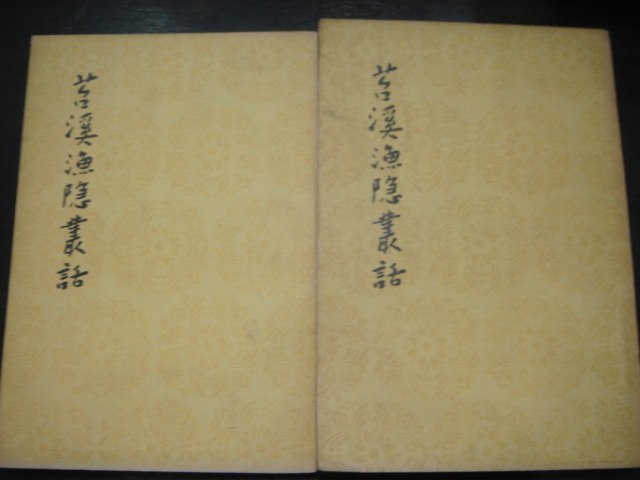 苕溪漁隱叢話
苕溪漁隱叢話